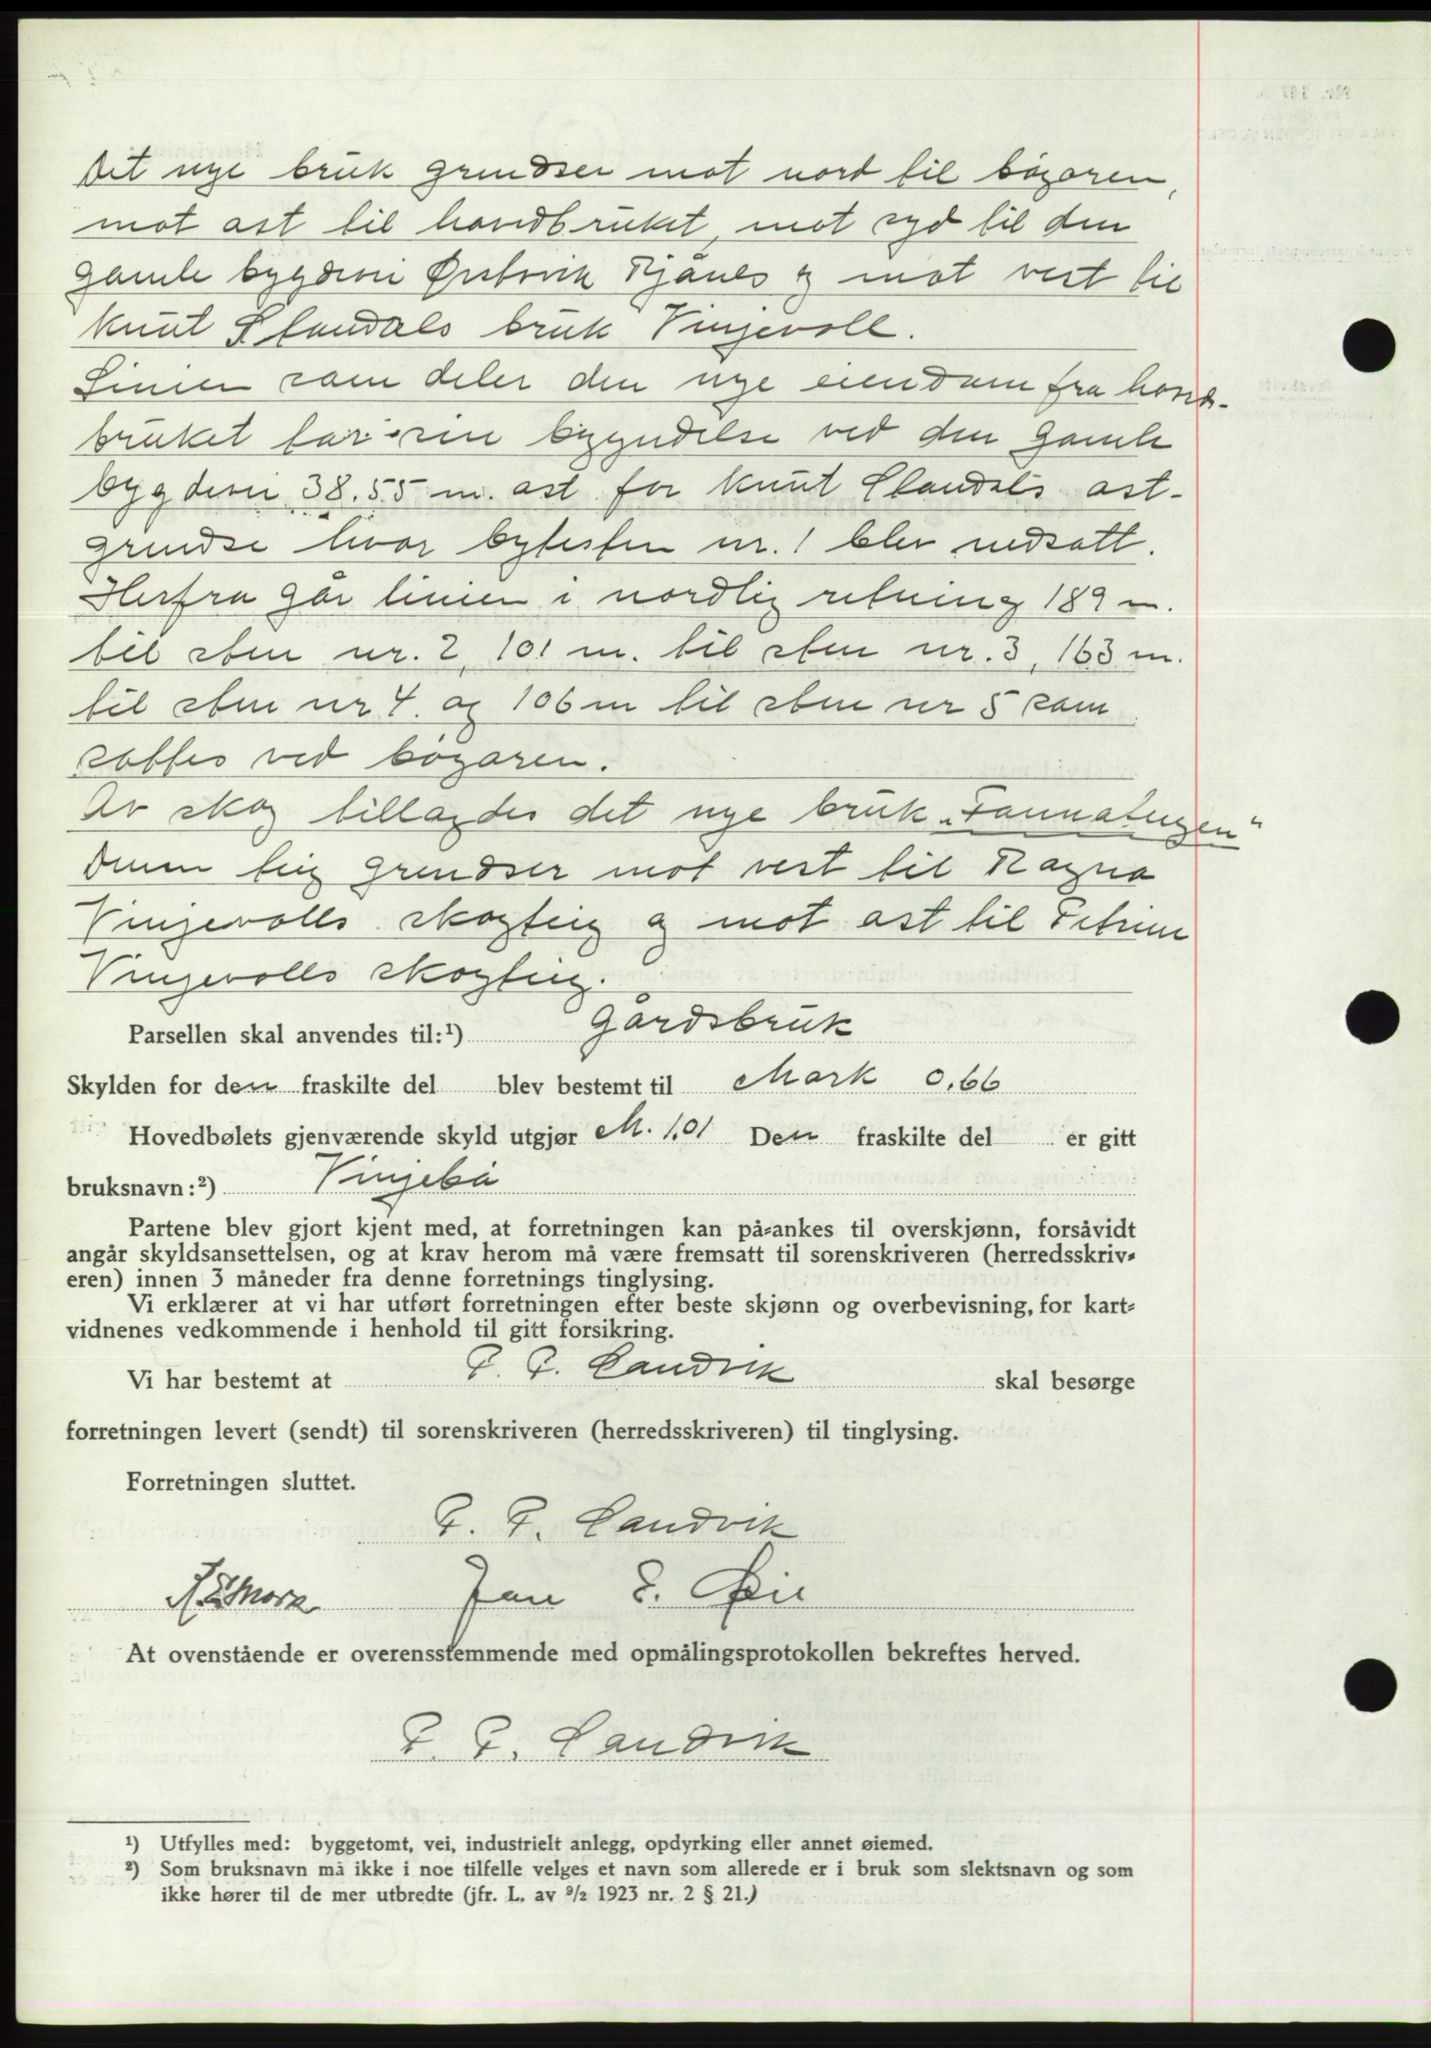 Det nye bruk grendser mot nord til bøgaren,
mot ost til hovedbruket, mot syd til den
gamle bygdevei Ørstavik Rjånes og mot vest til
Knut Standals bruk Vinjevoll.
Linien som deler den nye eiendom fra hoved-
bruket tar sin begyndelse ved den gamle
bygdevei 38.55 m. ost for Knut Standals ost-
grendse hvor bytesten nr. 1 blev nedsatt.
Herfra går linien i nordlig retning 189 m.
til sten nr. 2, 101 m. til sten nr. 3, 163 m.
til sten nr 4. og 106 m til sten nr 5 som
sattes ved bøgaren.
Av skog tillagdes det nye bruk
Denne teig grendser mot vest til Ragna
Vinjevolls skogteig og mot ost til Petrine
Vinjevolls skogteig.
Parsellen skal anvendes til:¹) Gårdsbruk
Skylden for den fraskilte del blev bestemt til Mark 0,66
Hovedbølets gjenværende skyld utgjør M. 1,01 Den fraskilte del er gitt
bruksnavn:²) Vinjebø
Partene blev gjort kjent med, at forretningen kan på-ankes til overskjønn, forsåvidt
angår skyldsansettelsen, og at krav herom må være fremsatt til sorenskriveren (herredsskriv-
eren) innen 3 måneder fra denne forretnings tinglysing.
Vi erklærer at vi har utført forretningen efter beste skjønn og overbevisning, for kart-
vidnenes vedkommende i henhold til gitt forsikring.
Vi har bestemt at P. P. Sandvik skal besørge
forretningen levert (sendt) til sorenskriveren (herredsskriveren) til tinglysing.
Forretningen sluttet.
P. P. Sandvik
Jon E. Øie
At ovenstående er overensstemmende med opmålingsprotokollen bekreftes herved.
P. P. Sandvik
¹) Utfylles med: byggetomt, vei, industrielt anlegg, opdyrking eller annet øiemed.
²) Som bruksnavn må ikke i noe tilfelle velges et navn som allerede er i bruk som slektsnavn og som
ikke hører til de mer utbredte (jfr. L. av 9/2 1923 nr. 2 § 21.)